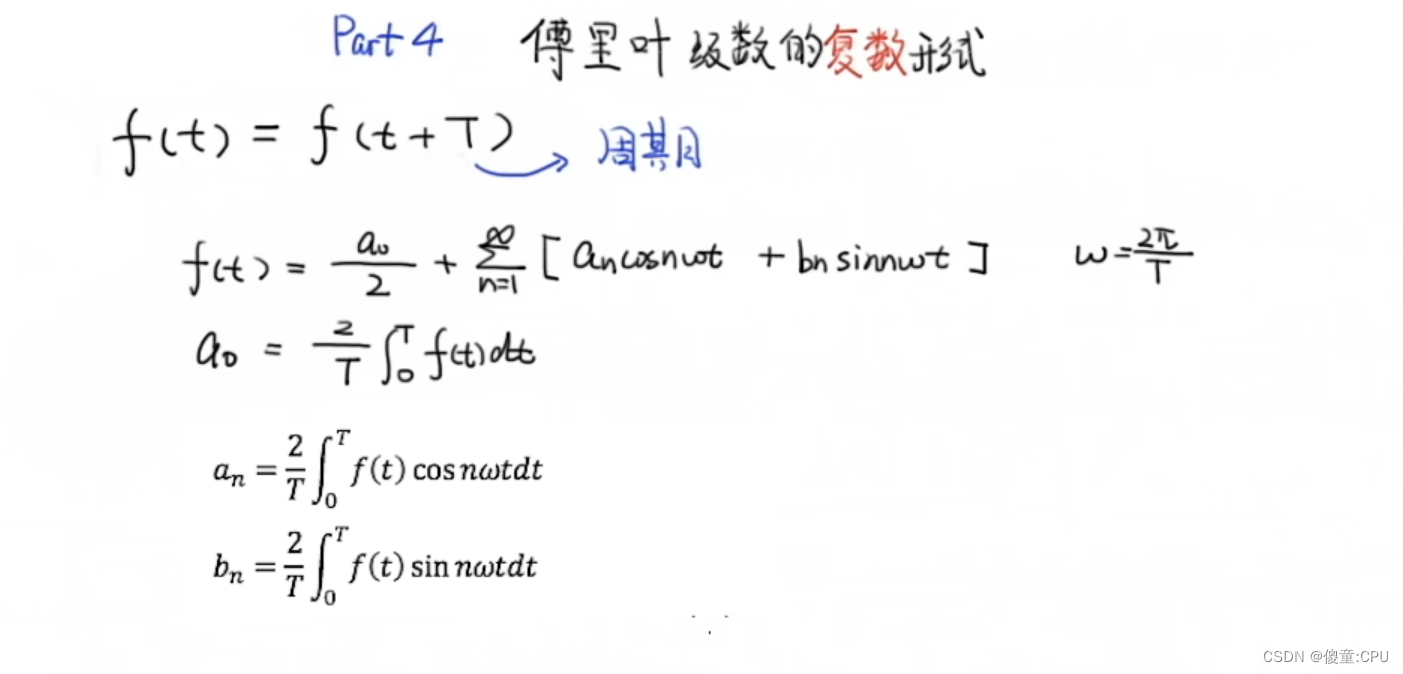 Part 4 傅里叶级数的复数形式
f(t) = f(t+T) 周期
f(t) = a₀/2 + ∑_{n=1}^{∞} [ aₙcosnωt + bₙsinnωt ] ω=2π/T
a₀ = 2/T ∫₀ᵀ f(t)dt
aₙ = 2/T ∫₀ᵀ f(t) cos nωtdt
bₙ = 2/T ∫₀ᵀ f(t) sin nωtdt
CSDN @傻童:CPU